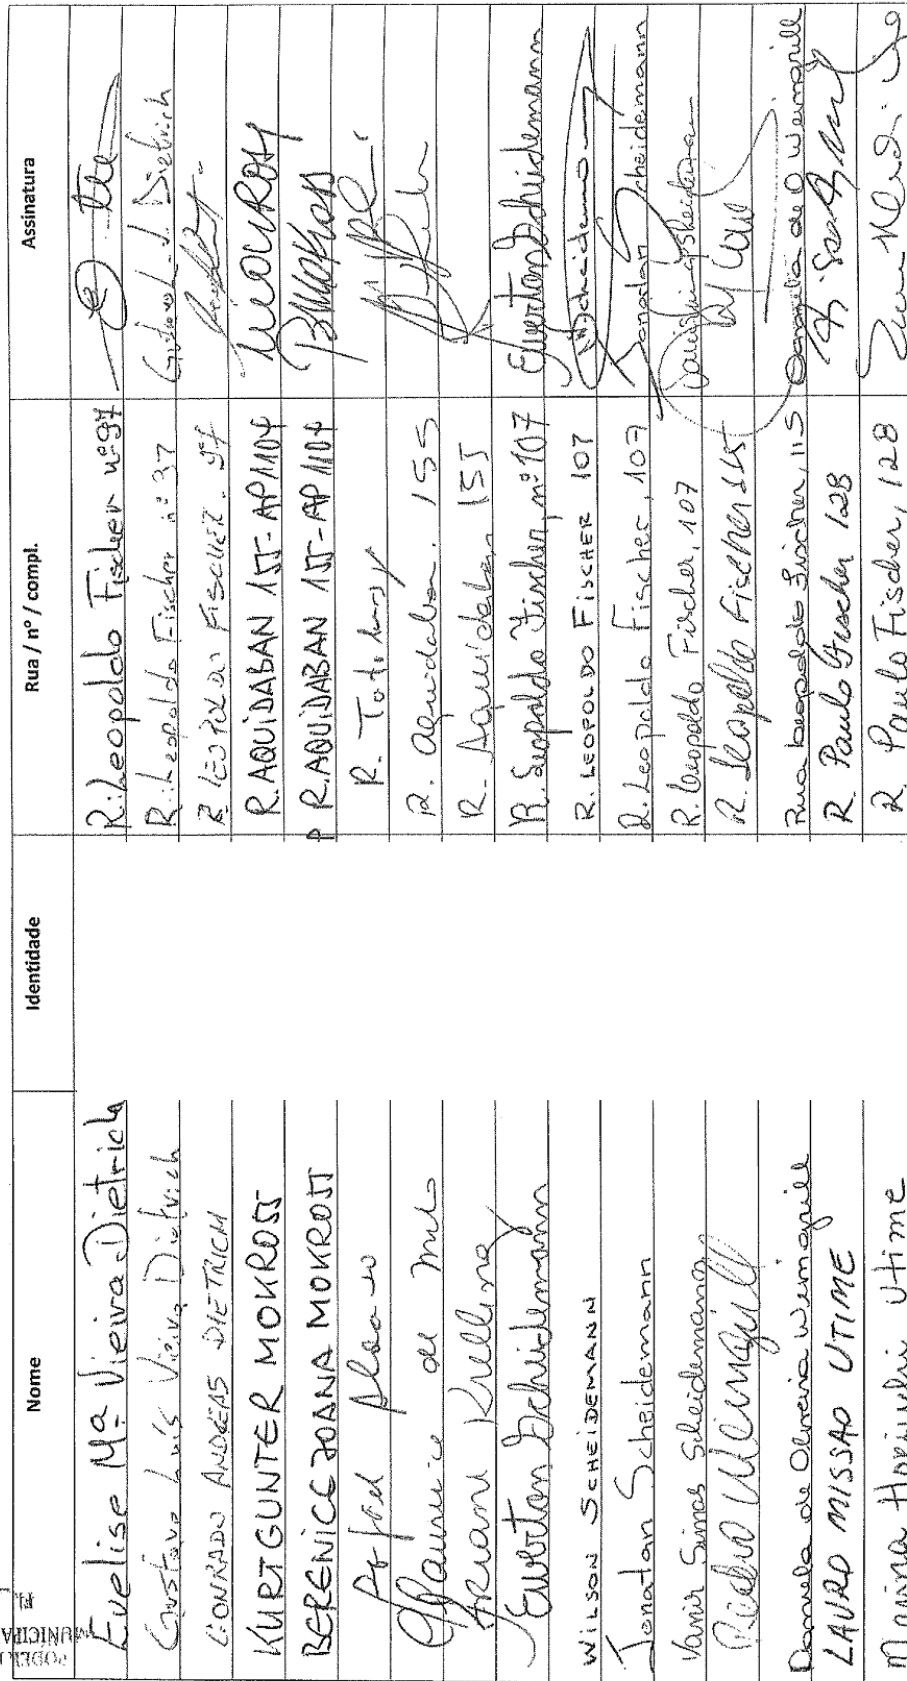 PODER
MUNICIPA
FL.
Nome Identidade Rua / nº / compl. Assinatura
Evelise Mª Vieira Dietrich R: Leopoldo Fischer nº 97
Gustavo Luís Vieira Dietrich R: Leopoldo Fischer nº 37 Gustavo L. V. Dietrich
CONRADO ANDREAS DIETRICH R. LEOPOLDO FISCHER. 97
KURT GUNTER MOKROSS R. AQUIDABAN 155-AP1104 MOKROSS
BERENICE JOANA MOKROSS R. AQUIDABAN 155-AP1104 BMOKROSS
R.
R. Aquidaban. 155
R. Aquidaban 155
Ewerton Scheidemann R. Leopoldo Fischer, nº 107 Ewerton Scheidemann
WILSON SCHEIDEMANN R. LEOPOLDO FISCHER 107 WScheidemann
Jonatan Scheidemann R. Leopoldo Fischer, 107 Jonatan Scheidemann
Vanir Simas Scheidemann R. Leopoldo Fischer, 107
Pedro R. Leopoldo Fischer 115
de Oliveira Rua Leopoldo Fischer, 115
LAURO MISSAO UTIME R. Paulo Fischer 128
Marina Utime R. Paulo Fischer, 128